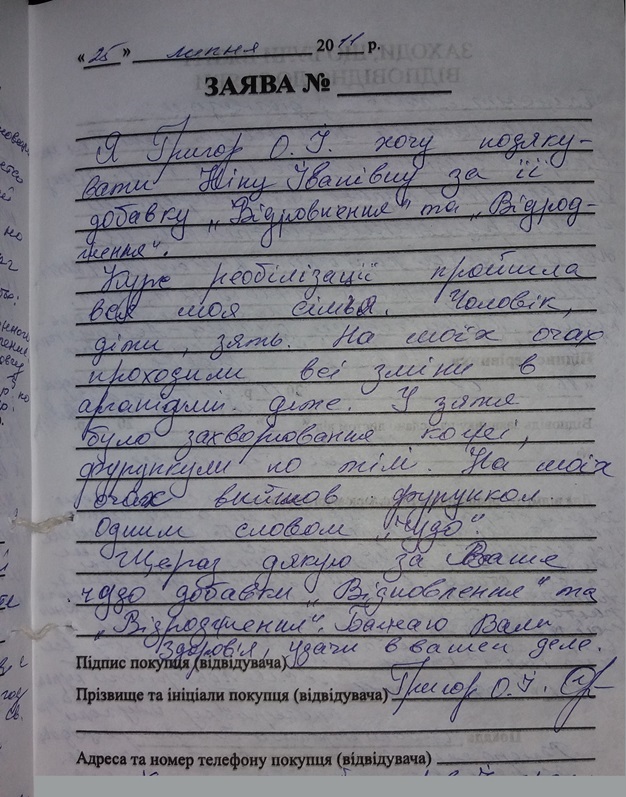 « 25 » липня 2011 р.
ЗАЯВА №
Я Григор О. І. хочу подяку-
вати Ніну Іванівну за її
добавку „Відровнення" та „Відрод-
ження".
Курс реобілізації пройшла
вся моя сімья. Чоловік,
діти, зять. На моїх очах
проходили всі зміни в
діже. У зятя
було захворювання кожі,
фурункули по тілі. На моїх
очах вийшов фурункол
Одним словом „Чудо".
Щераз дякую за Ваше
чудо добавки „Відновлення" та
„Відродження". Бажаю Вам
Здоровія, удачи в вашем деле.
Підпис покупця (відвідувача)
Прізвище та ініціали покупця (відвідувача) Григор О. І.
Адреса та номер телефону покупця (відвідувача)